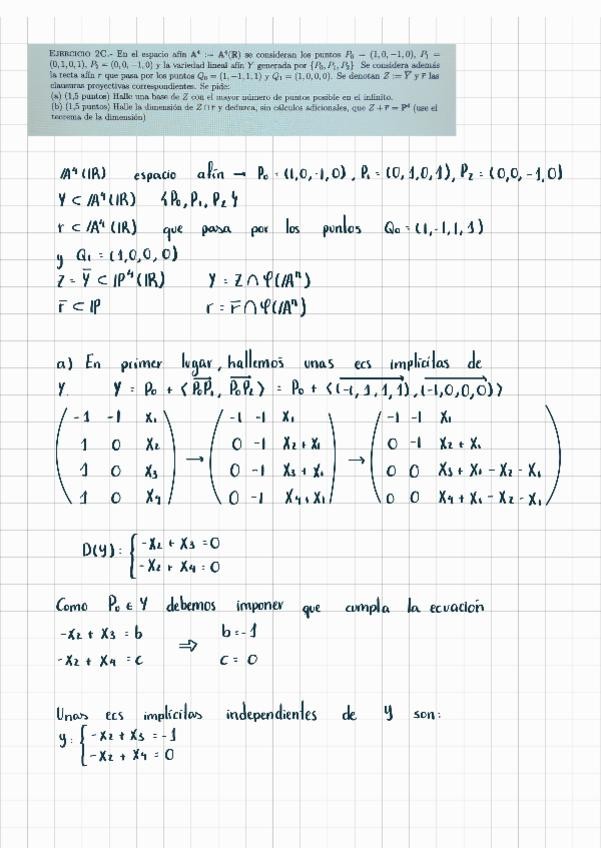 EJERCICIO 2C.- En el espacio afín A⁴ := A⁴(R) se consideran los puntos P₀ = (1,0,−1,0), P₁ =
(0,1,0,1), P₂ = (0,0,−1,0) y la variedad lineal afín Y generada por {P₀, P₁, P₂}. Se considera además
la recta afín r que pasa por los puntos Q₀ = (1,−1,1,1) y Q₁ = (1,0,0,0). Se denotan Z := Y̅ y r̅ las
clausuras proyectivas correspondientes. Se pide:
(a) (1,5 puntos) Halle una base de Z con el mayor número de puntos posible en el infinito.
(b) (1,5 puntos) Halle la dimensión de Z ∩ r̅ y deduzca, sin cálculos adicionales, que Z + r̅ = P⁴ (use el
teorema de la dimensión)
A⁴(IR) espacio afín → P₀ = (1,0,-1,0), P₁ = (0,1,0,1), P₂ = (0,0,-1,0)
Y ⊂ A⁴(IR) {P₀, P₁, P₂}
r ⊂ A⁴(IR) que pasa por los puntos Q₀ = (1,-1,1,1)
y Q₁ = (1,0,0,0)
Z = Y̅ ⊂ IP⁴(IR) Y = Z ∩ φ(Aⁿ)
r̅ ⊂ IP r = r̅ ∩ φ(Aⁿ)
a) En primer lugar, hallemos unas ecs implícitas de
Y. Y = P₀ + <P₀P₁, P₀P₂> = P₀ + <(-1,1,1,1), (-1,0,0,0)>
( -1 -1 X₁ ) ( -1 -1 X₁ ) ( -1 -1 X₁ )
( 1 0 X₂ ) → ( 0 -1 X₂ + X₁ ) → ( 0 -1 X₂ + X₁ )
( 1 0 X₃ ) ( 0 -1 X₃ + X₁ ) ( 0 0 X₃ + X₁ - X₂ - X₁ )
( 1 0 X₄ ) ( 0 -1 X₄ + X₁ ) ( 0 0 X₄ + X₁ - X₂ - X₁ )
D(Y): { -X₂ + X₃ = 0
-X₂ + X₄ = 0
Como P₀ ∈ Y debemos imponer que cumpla la ecuación
-X₂ + X₃ = b ⇒ b = -1
-X₂ + X₄ = c c = 0
Unas ecs implícitas independientes de Y son:
Y: { -X₂ + X₃ = -1
-X₂ + X₄ = 0